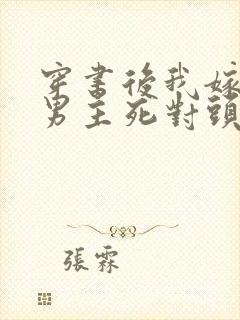 穿書後我嫁
男主死對頭
張霖